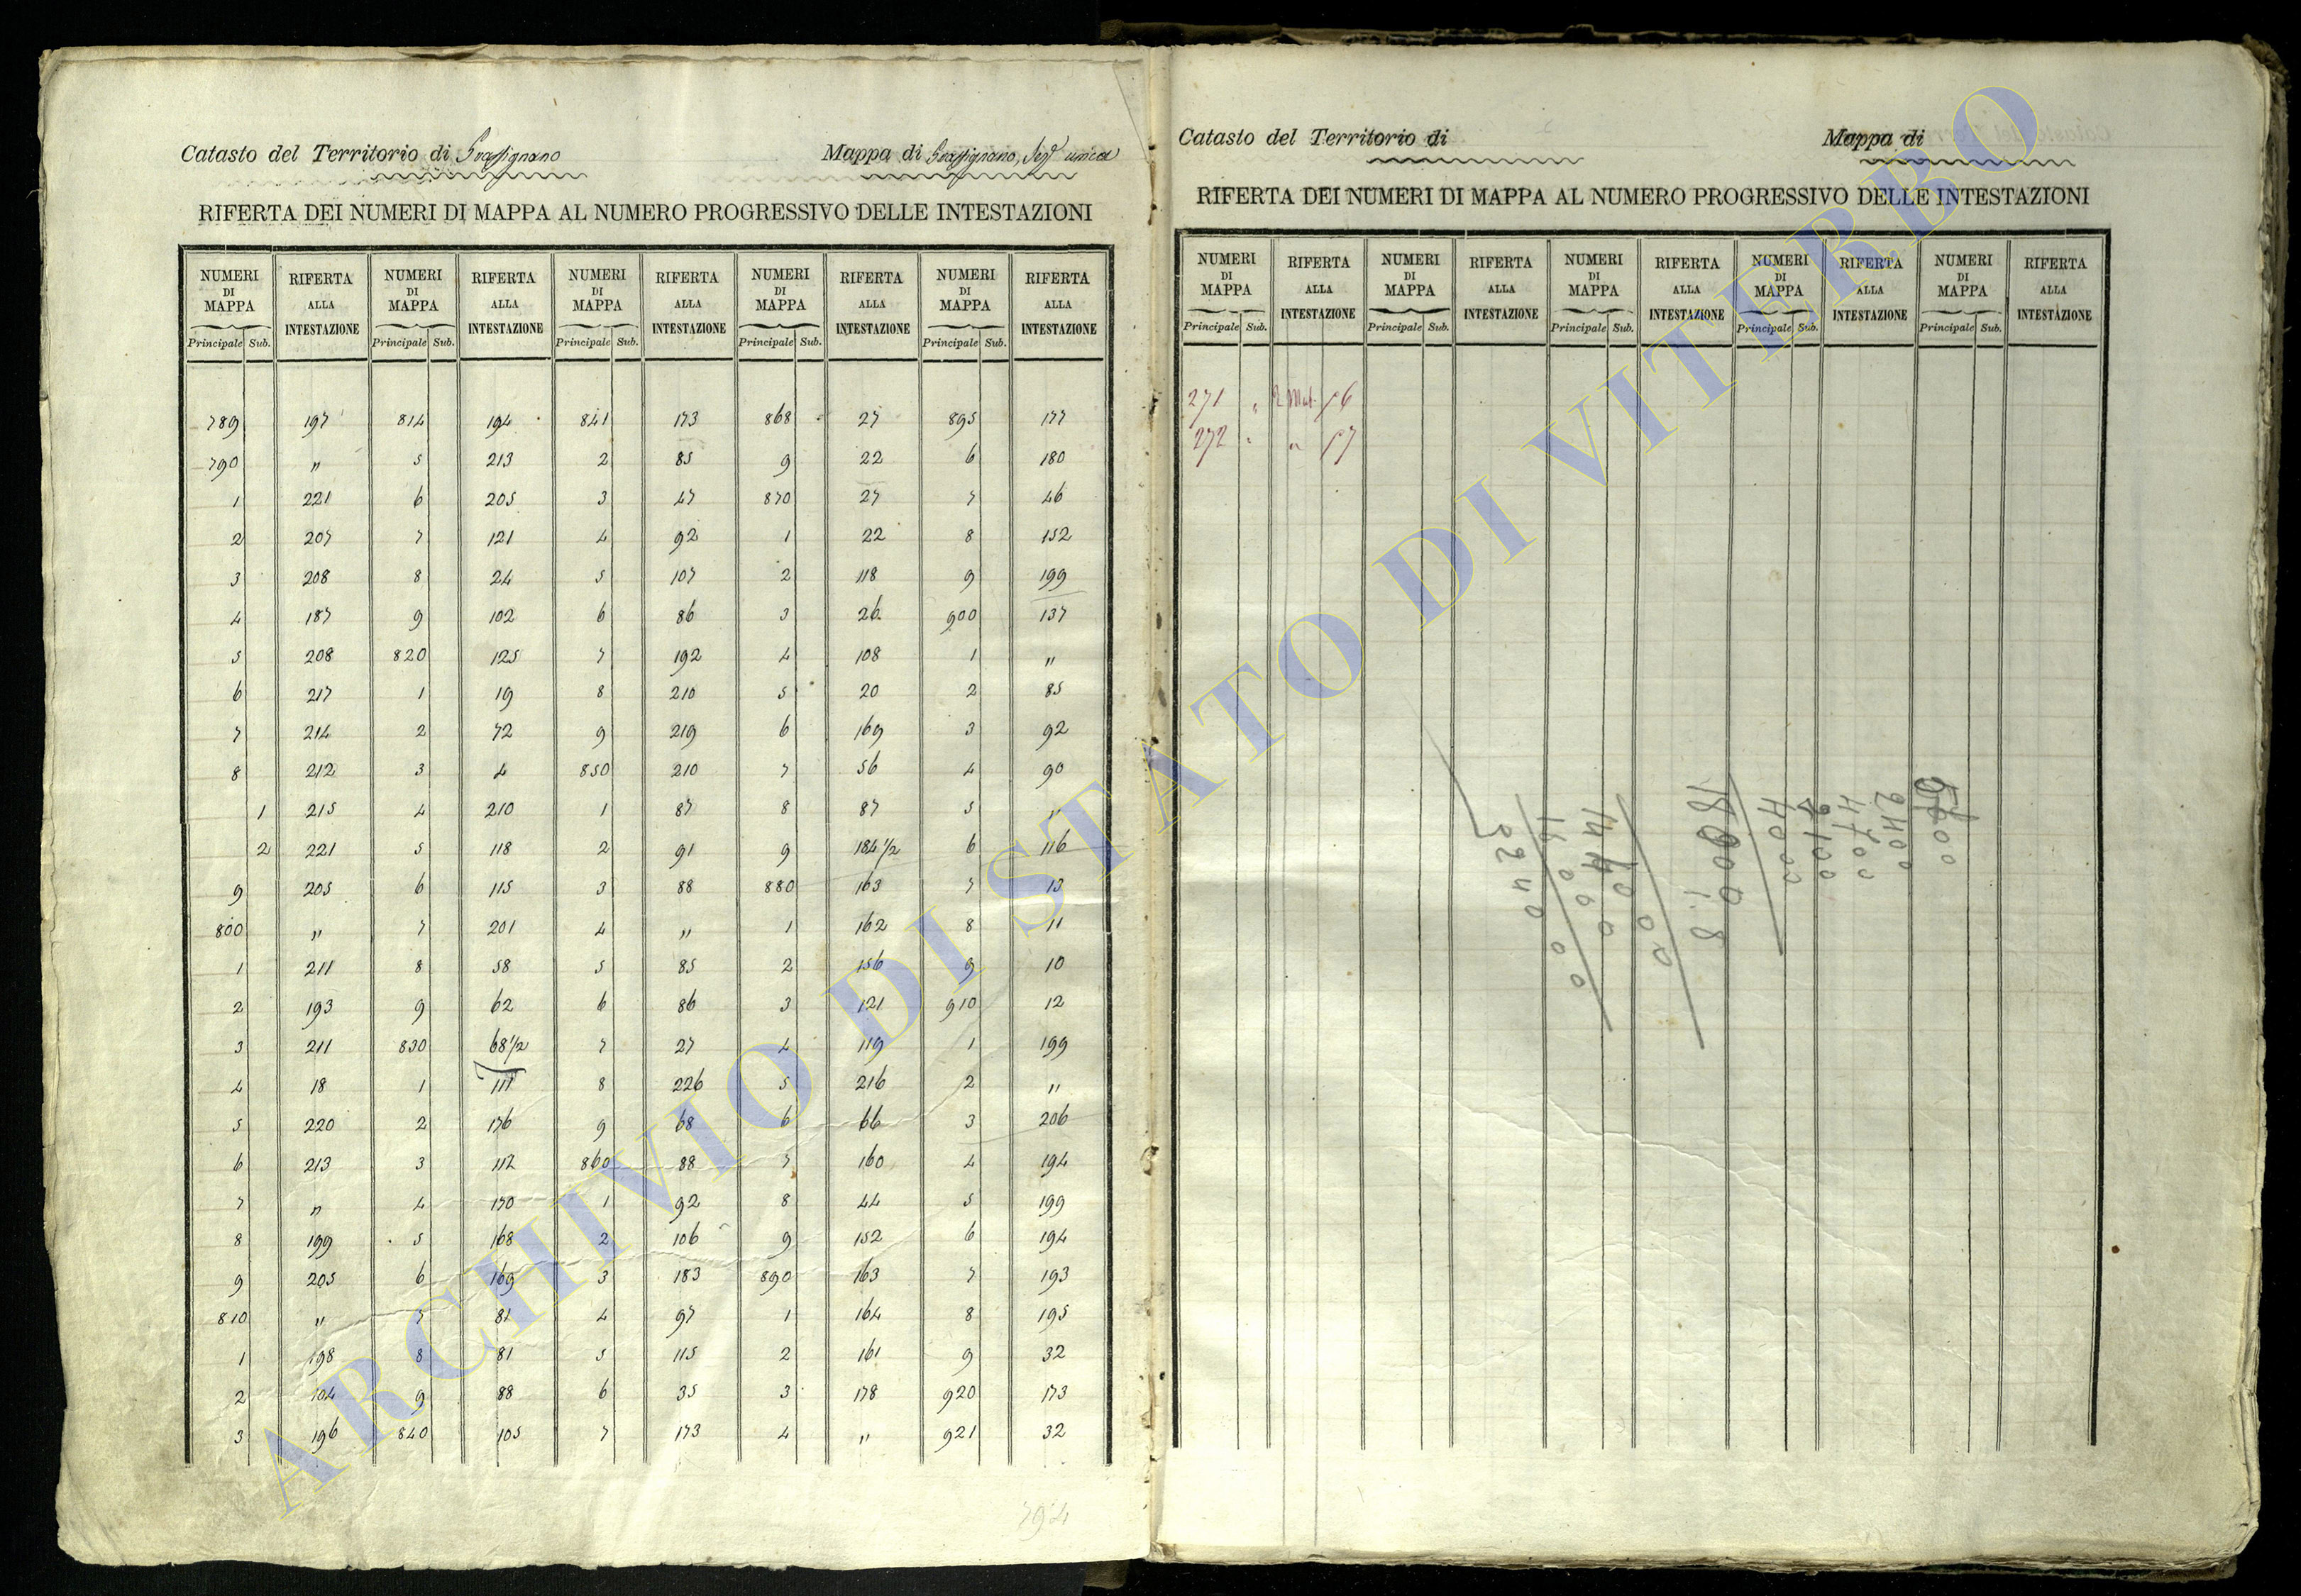 Catasto del Territorio di Graffignano Mappa di Graffignano, Sez. unica
RIFERTA DEI NUMERI DI MAPPA AL NUMERO PROGRESSIVO DELLE INTESTAZIONI
NUMERI DI MAPPA RIFERTA ALLA INTESTAZIONE NUMERI DI MAPPA RIFERTA ALLA INTESTAZIONE NUMERI DI MAPPA RIFERTA ALLA INTESTAZIONE NUMERI DI MAPPA RIFERTA ALLA INTESTAZIONE NUMERI DI MAPPA RIFERTA ALLA INTESTAZIONE
Principale Sub. Principale Sub. Principale Sub. Principale Sub. Principale Sub.
789 197 814 194 841 173 868 27 895 177
790 " 5 213 2 85 9 22 6 180
1 221 6 205 3 47 870 27 7 46
2 207 7 121 4 92 1 22 8 152
3 208 8 24 5 107 2 118 9 199
4 187 9 102 6 86 3 26 900 137
5 208 820 125 7 192 4 108 1 "
6 217 1 19 8 210 5 20 2 85
7 214 2 72 9 219 6 169 3 92
8 212 3 4 850 210 7 56 4 90
1 215 4 210 1 87 8 87 5 "
2 221 5 118 2 91 9 184 1/2 6 116
9 205 6 115 3 88 880 163 7 13
800 " 7 201 4 " 1 162 8 11
1 211 8 58 5 85 2 156 9 10
2 193 9 62 6 86 3 121 910 12
3 211 830 68 1/2 7 27 4 119 1 199
4 18 1 111 8 226 5 216 2 "
5 220 2 176 9 68 6 66 3 206
6 213 3 112 860 88 7 160 4 194
7 " 4 170 1 92 8 44 5 199
8 199 5 168 2 106 9 152 6 194
9 205 6 169 3 183 890 163 7 193
810 " 7 81 4 97 1 164 8 195
1 198 8 81 5 115 2 161 9 32
2 104 9 88 6 35 3 178 920 173
3 196 840 105 7 173 4 " 921 32
794
Catasto del Territorio di Mappa di
RIFERTA DEI NUMERI DI MAPPA AL NUMERO PROGRESSIVO DELLE INTESTAZIONI
NUMERI DI MAPPA RIFERTA ALLA INTESTAZIONE NUMERI DI MAPPA RIFERTA ALLA INTESTAZIONE NUMERI DI MAPPA RIFERTA ALLA INTESTAZIONE NUMERI DI MAPPA RIFERTA ALLA INTESTAZIONE NUMERI DI MAPPA RIFERTA ALLA INTESTAZIONE
Principale Sub. Principale Sub. Principale Sub. Principale Sub. Principale Sub.
271 " 2 Mut. p6
272 " " p7
2400
4700
2100
4000
32400
ARCHIVIO DI STATO DI VITERBO